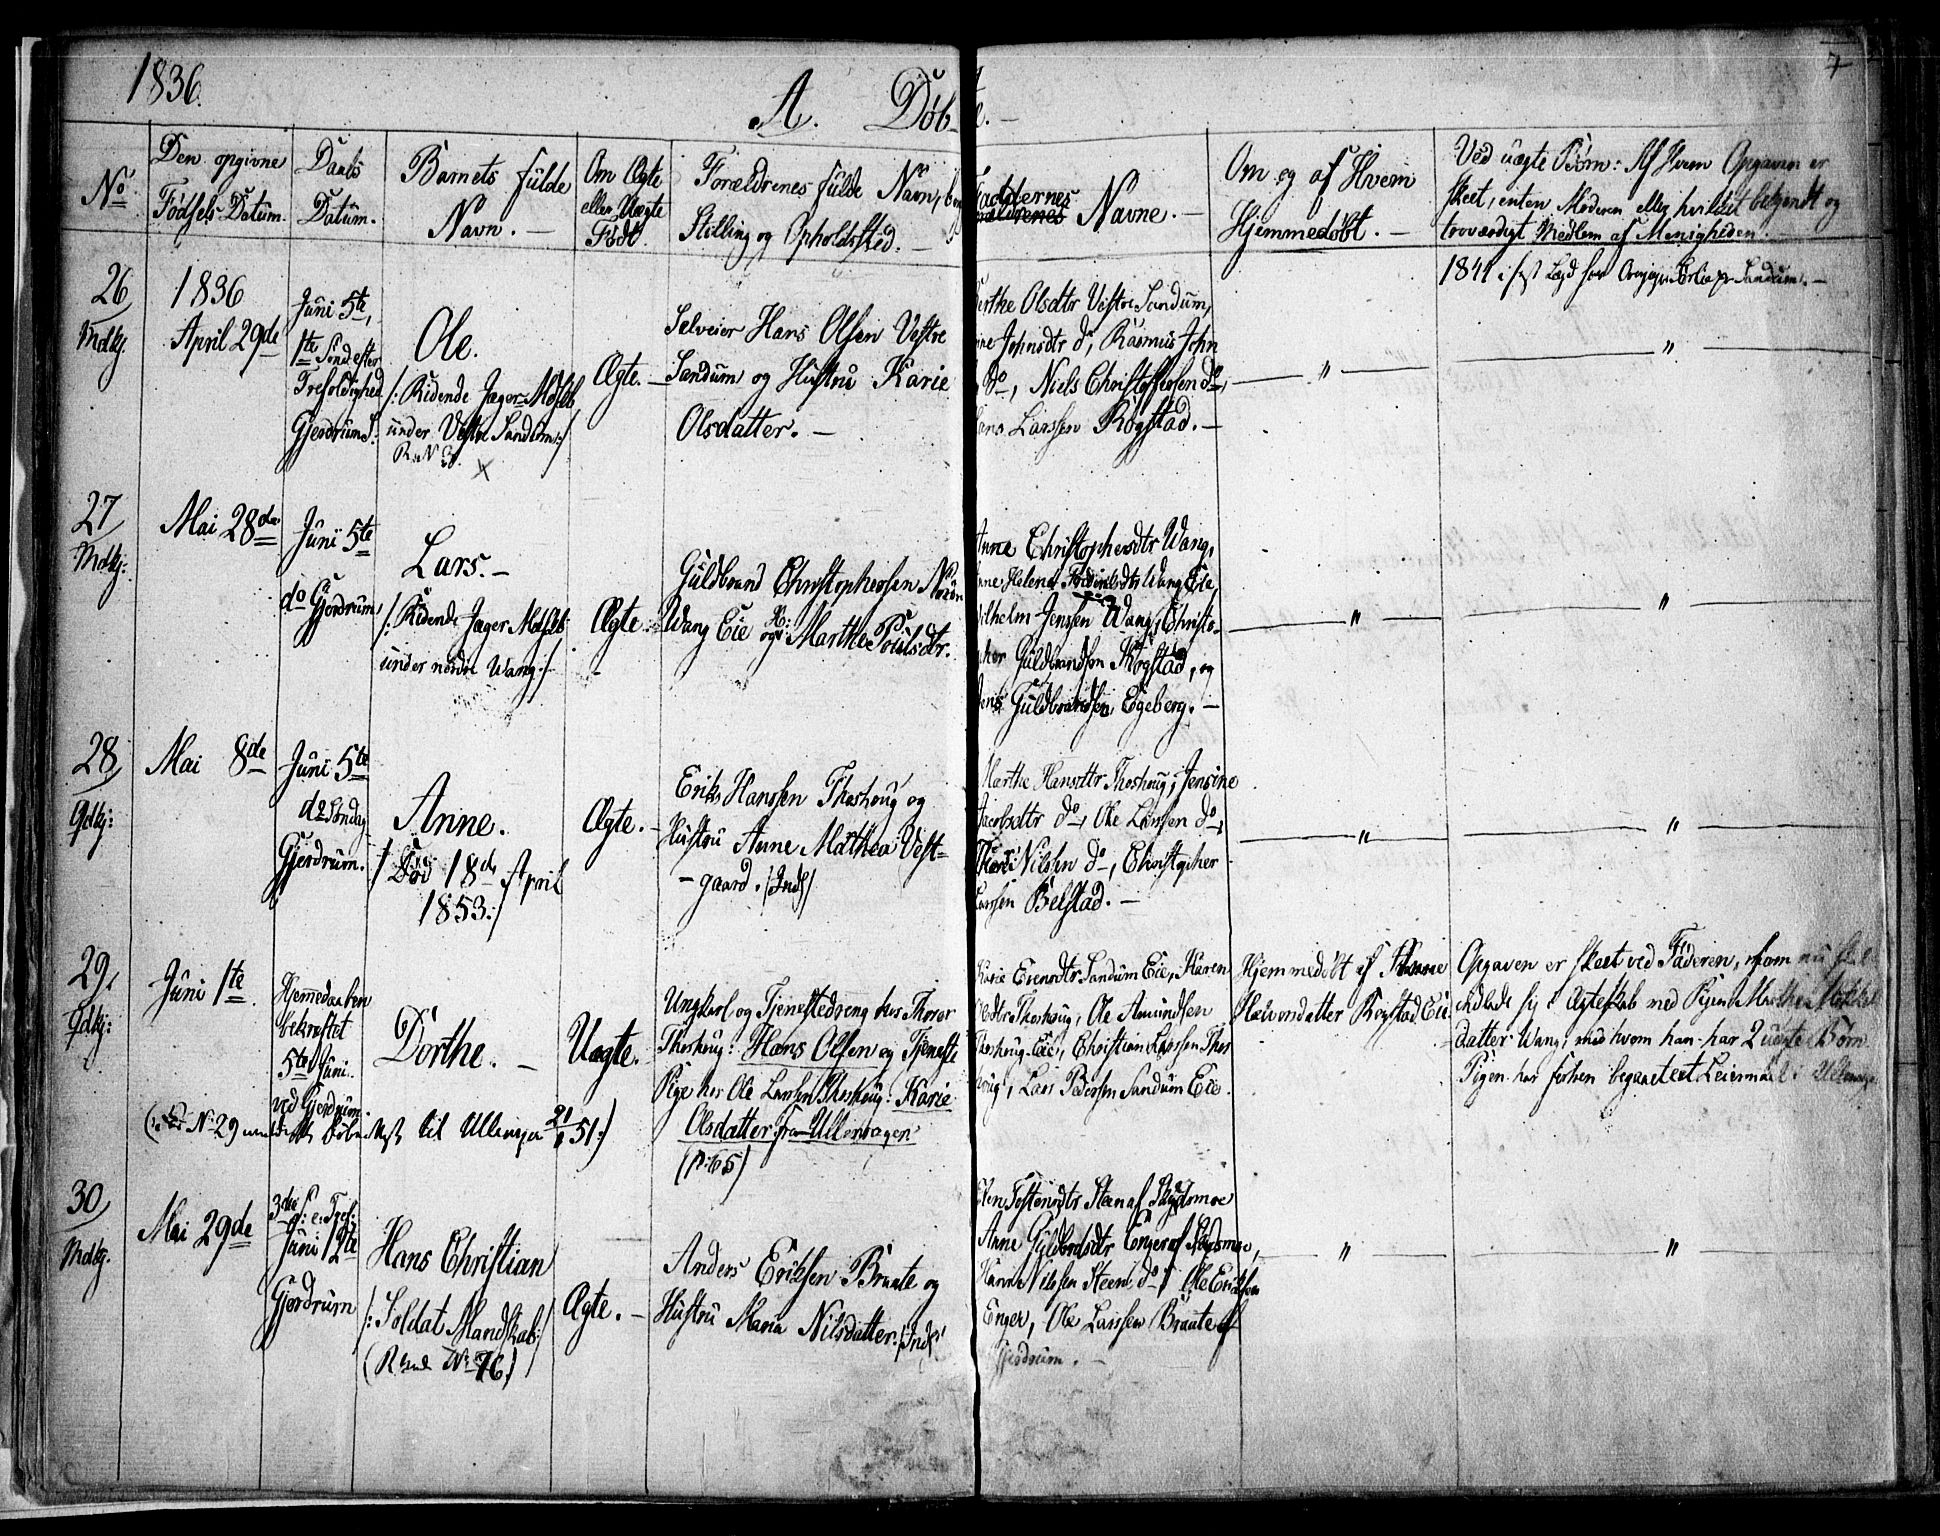 1836.
A. Døb-
7
No
Den opgivne
Fødsels-Datum.
Daabs
Datum.
Barnets fulde
Navn. —
Om Ægte
eller Uægte
Født.
Forældrenes fulde Navn,
Stilling og Opholdssted. —
Faddernes
Navne. —
Om og af Hvem
Hjemmedøbt. —
Ved uægte Børn: Af Hvem Opgaven er
skeet, enten Moderen eller hvilket bekjendt og
troværdigt Medlem af Menigheden.
26
Mdkj.
1836
April 29de
Juni 5te,
1te Sønd. efter
Trefoldighed
Gjerdrum
Ole.
/: Ridende Jæger-
under Vestre Sandum:/
R. N 3.
Ægte. —
Selveier Hans Olsen Vestre
Sandum og Hustru Karie
Olsdatter. —
Berthe Olsdtr Vestre Sandum,
Johnsdtr do, Rasmus John
do, Niels Christophersen do,
Hans Larssen Rogstad. —
— " —
1841
Sandum. —
— " —
27
Mdkj:
Mai 28de
Juni 5te
do Gjerdrum
Lars. —
/: Ridende Jæger
under nordre Wang:/
Ægte. —
Guldbrand Christophersen Nordre
Wang Eie og H: Marthe Poulsdtr.
Anne Christophersdtr Wang,
Helena Wang Eie,
Wilhelm Jenssen Wang, Christo-
pher Guldbrandsen Rogstad, og
Jens Guldbrandsen Egeberg. —
— " —
— " —
28
Qdkj:
Mai 8de
Juni 5te
do Søndag
Gjerdrum.
Anne.
/: Død 18de April
1853:/
Ægte. —
Erik Hanssen Thoshoug og
Hustru Anne Mathea Vest-
gaard. /Inds/
Marthe Hansdtr Thoshoug, Jensine
Jacobsdtr do, Ole Larssen do,
Nilssen do, Christopher
Larssen Belstad. —
— " —
— " —
29.
Qdkj:
Juni 1te.
Hjemmedaaben
bekræftet
5te Juni
ved Gjerdrum.
Dorthe. —
Uægte.
Ungkarl og Tjenestedreng hos Thoror
Thoshoug: Hans Olsen og Tjeneste
Pige hos Ole Larssen Thoshoug: Karie
Olsdatter fra Ullensagen
(p. 65)
Karie Evensdtr Sandum Eie, Karen
Olsdtr Thoshoug, Ole Amundsen
Thoshoug Eie, Christian Larssen Thos
houg, Lars Pedersen Sandum Eie.
Hjemmedøbt af
Halvorsdatter Rogstad Eie.
Opgaven er skeet ved Faderen, som nu
indlade sig i Ægteskab med Pigen Marthe
datter Wang, med hvom han har 2 uægte Børn.
Pigen har forhen begaaet eet Leiermaal i
No 29 til Ullensagen 21/1 51:)
30
Mdkj.
Mai 29de
3die S. e. Tref.
Juni 12te
Gjerdrum
Hans Christian
/: Soldat Mandskab:/
(No 76)
Ægte. —
Anders Eriksen Braate og
Hustru Maria Nilsdatter. /Inds/
Tostensdtr Steen af Skydsmoe
Anne Guldbrdsdtr Enger af Skydsmoe,
Hanne Nilssen Steen do, Ole Erichsen
Enger, Ole Larssen Braate af
Gjerdrum. —
— " —
— " —